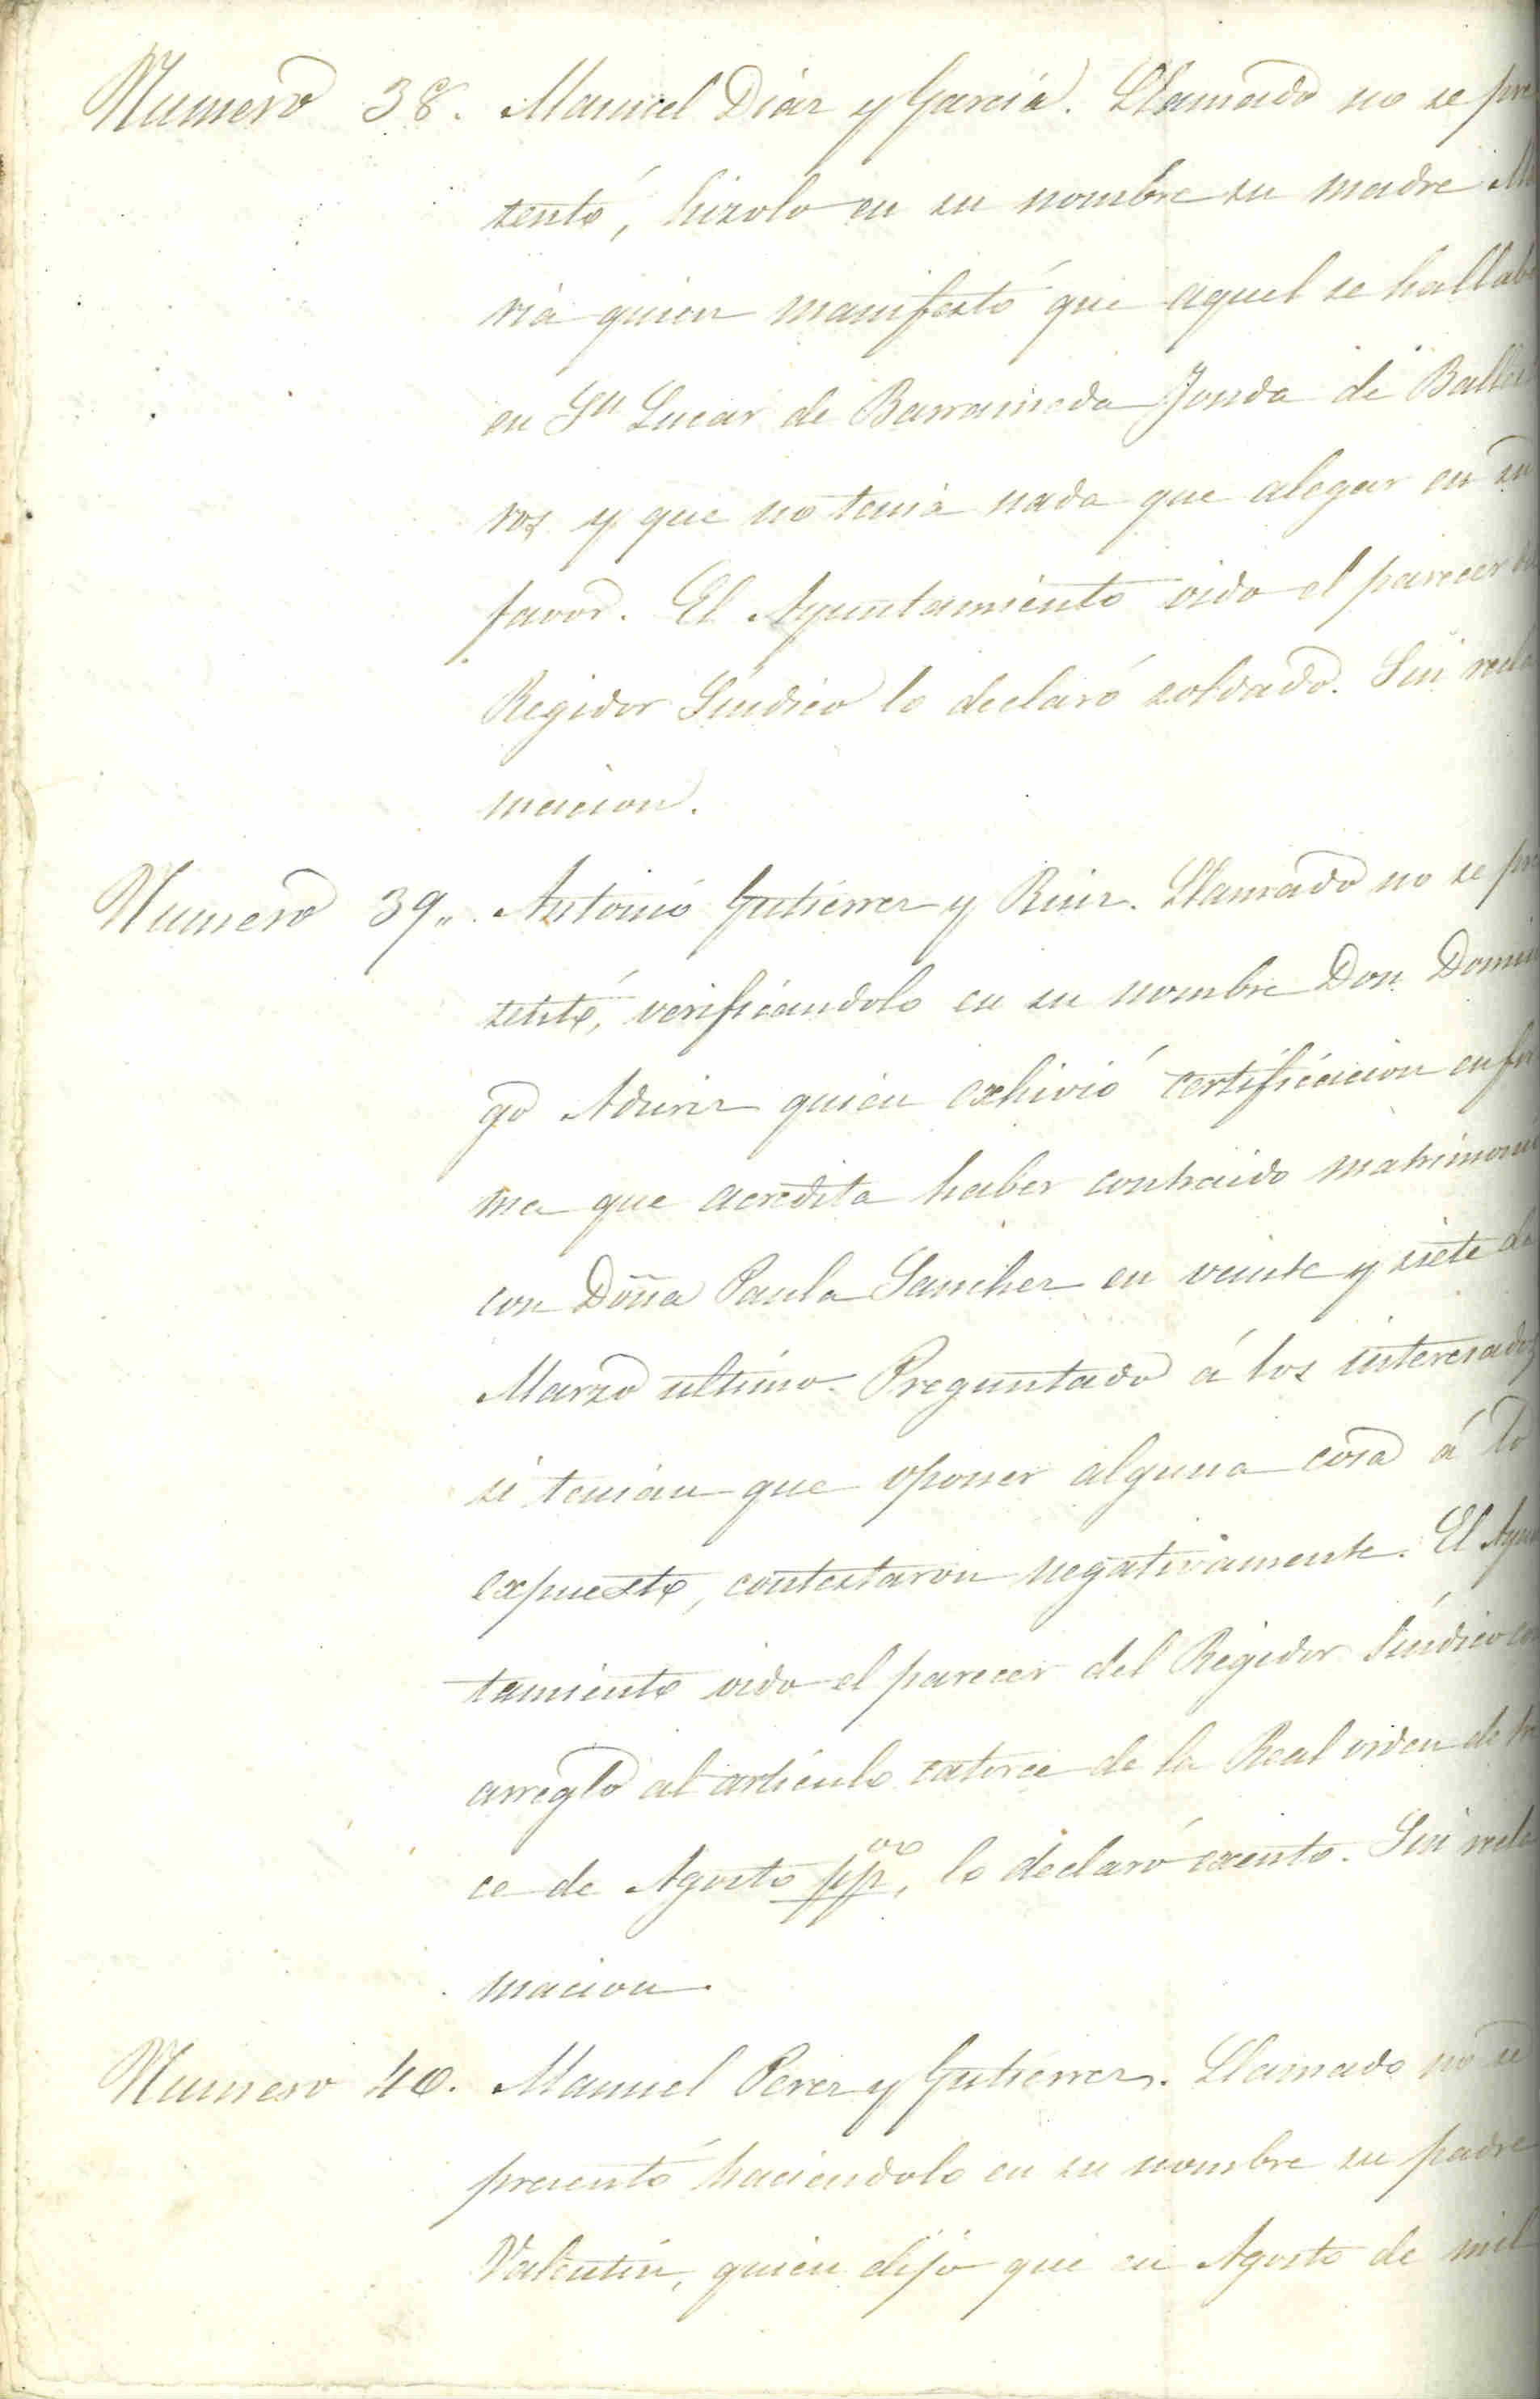 Numero 38. Manuel Diaz y Garcia. Llamado no se pre
sentó, hizolo en su nombre su madre Ma
ria quien manifestó que aquel se hallaba
en Sn Lucar de Barrameda Fonda de Balles
ros y que no tenia nada que alegar en su
favor. El Ayuntamiento oido el parecer
Regidor Sindico lo declaró soldado. Sin recla
macion.
Numero 39. Antonio Gutierrez y Ruiz. Llamado no se pre
sentó, verificandolo en su nombre Don Domin
go quien exhivió certificacion en for
ma que acredita haber contraido matrimonio
con Doña Paula Sanchez en veinte y siete de
Marzo ultimo. Preguntado á los interesados
si tenian que oponer alguna cosa á lo
expuesto, contestaron negativamente. El Ayun
tamiento oido el parecer del Regidor Sindico con
arreglo al articulo catorce de la Real orden de tre
ce de Agosto ppdo, lo declaró exento. Sin recla
macion.
Numero 40. Manuel Perez y Gutierrez. Llamado no se
presentó haciendolo en su nombre su padre
Valentin, quien dijo que en Agosto de mil